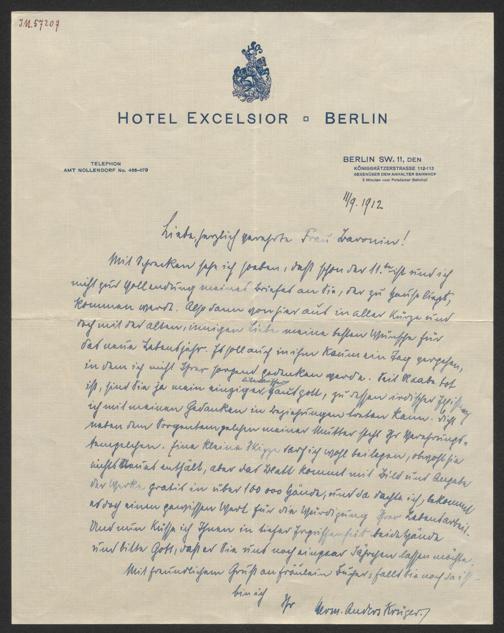 I.N. 57207
HOTEL EXCELSIOR □ BERLIN
TELEPHON
AMT NOLLENDORF No.
BERLIN SW. 11, DEN
KÖNIGGRÄTZERSTRASSE 112-113
GEGENÜBER DEM ANHALTER BAHNHOF
2 Minuten vom Potsdamer Bahnhof
11/9. 1912
Liebe, herzlich verehrte Frau Baronin!
Mit Schrecken sehe ich soeben, daß schon der 11. te ist und ich
nicht zur Vollendung meines Briefes an Sie, der zu Hause liegt,
kommen werde. Also denn von hier aus in aller Kürze und
doch mit der alten, innigen Liebe meine besten Wünsche für
das neue Lebensjahr. Es soll auch in ihm kaum ein Tag vergehen,
in dem ich nicht Ihrer sorgend gedenken werde. Seit Raabe tot
ist, sind Sie ja mein einziger Hausgott, zu dessen irdischer
ich mit meinen Gedanken in Beziehungen treten kann. Dicht
neben dem Sorgentempelchen meiner Mutter steht Ihr Verehrungs-
tempelchen. Eine kleine Skizze darf ich wohl beilegen, obwohl sie
nichts Neues enthält, aber das Blatt kommt mit Bild und Angabe
der Werke gratis in über 100 000 Hände, und da dachte ich, bekommt
es doch einen gewissen Wert für die Würdigung Ihrer Lebensarbeit.
Und nun küsse ich Ihnen in tiefer Ergriffenheit beide Hände
und bitte Gott, daß er Sie uns noch ein paar Jährchen lassen möchte.
Mit freundlichem Gruß an Fräulein Bucher, falls sie noch da ist
bin ich Ihr Herm. Anders Krüger.